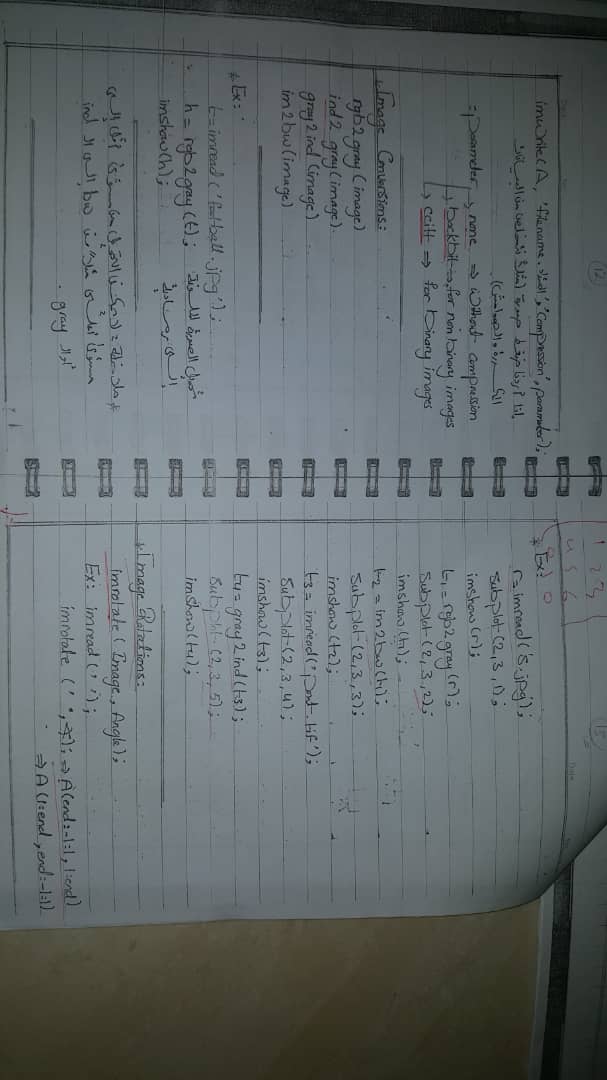 12
imwrite(A, 'filename.امتداد', 'Compression', parameter);
إذا أردنا ضغط صورة (مثلاً نتخلص من البيانات
المكررة والهوامش).
parameter → none ⇒ without compression
→ backbit → for non binary images
→ ccitt ⇒ for binary images
Image Conversions:
rgb2gray(image)
ind2gray(image).
gray2ind(image)
im2bw(image)
* Ex:
t=imread('football.jpg');
h = rgb2gray(t); تحويل الصورة الملونة
imshow(h); إلى رمادية
* ملاحظة: لا يمكن التحويل من مستوى أقل إلى
مستوى أعلى مثلاً من bw إلى الـ ind
أو الـ gray.
13
1 2 3
4 5 6
* Ex:
r=imread('s.jpg');
subplot(2,3,1);
imshow(r);
t1=rgb2gray(r);
subplot(2,3,2);
imshow(t1);
t2=im2bw(t1);
subplot(2,3,3);
imshow(t2);
t3=imread('pont.tif');
subplot(2,3,4);
imshow(t3);
t4=gray2ind(t3);
subplot(2,3,5);
imshow(t4);
* Image Rotations:
imrotate(Image, Angle);
Ex: imread(' ');
imrotate(' ', ); ⇒ A(end:-1:1, 1:end)
⇒ A(1:end, end:-1:1)